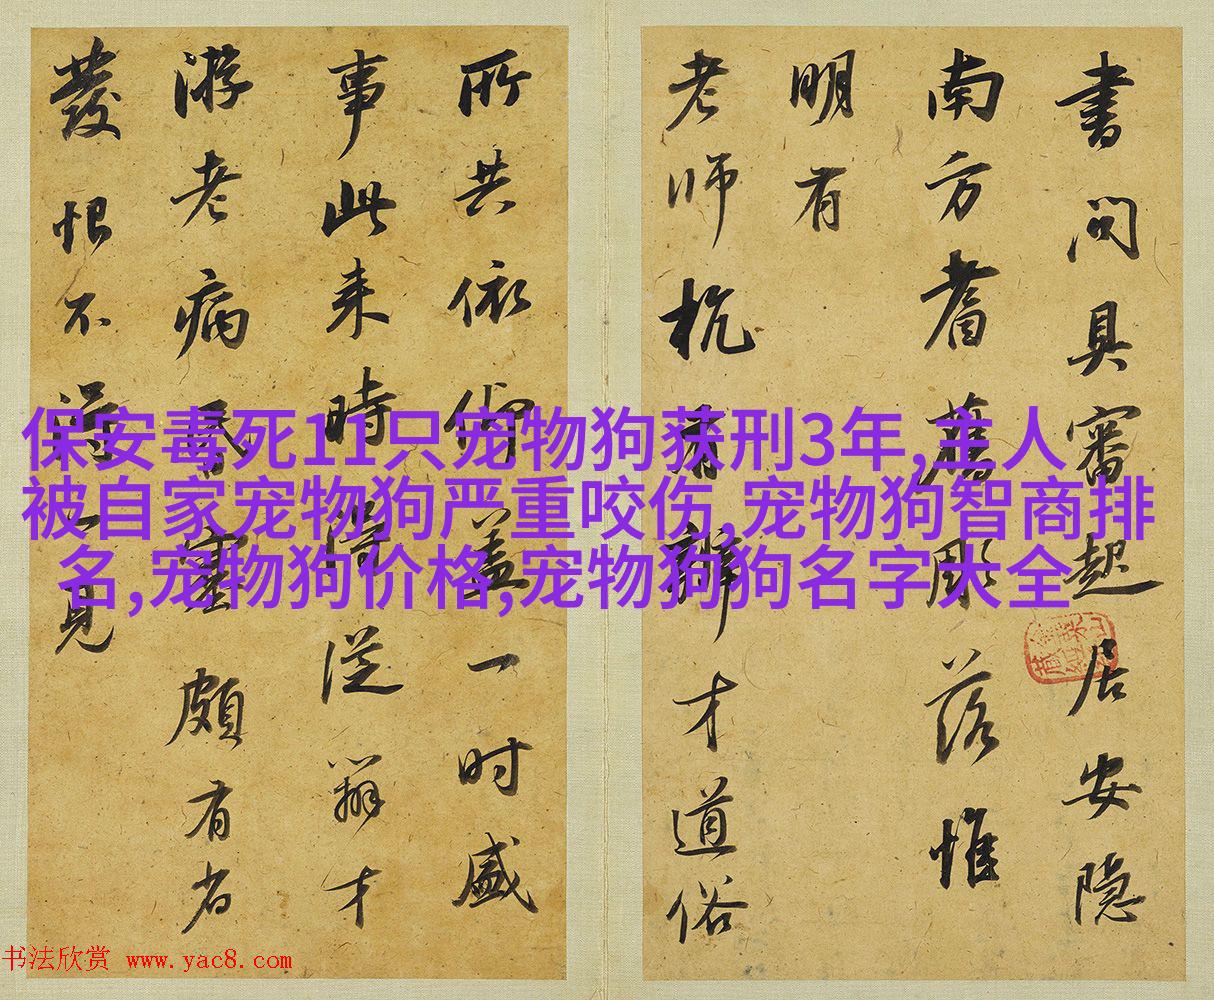 書问具審起居安隱
南方耆舊彫落惟
明有
老师杭有辯才道俗
所共依仰蓋一时盛
事此来時得從辯才
游老病昏塞頗有省
發恨不得一見
保安毒死11只宠物狗获刑3年,主人
被自家宠物狗严重咬伤,宠物狗智商排
名,宠物狗价格,宠物狗狗名字大全
书法欣赏 www.yac8.com